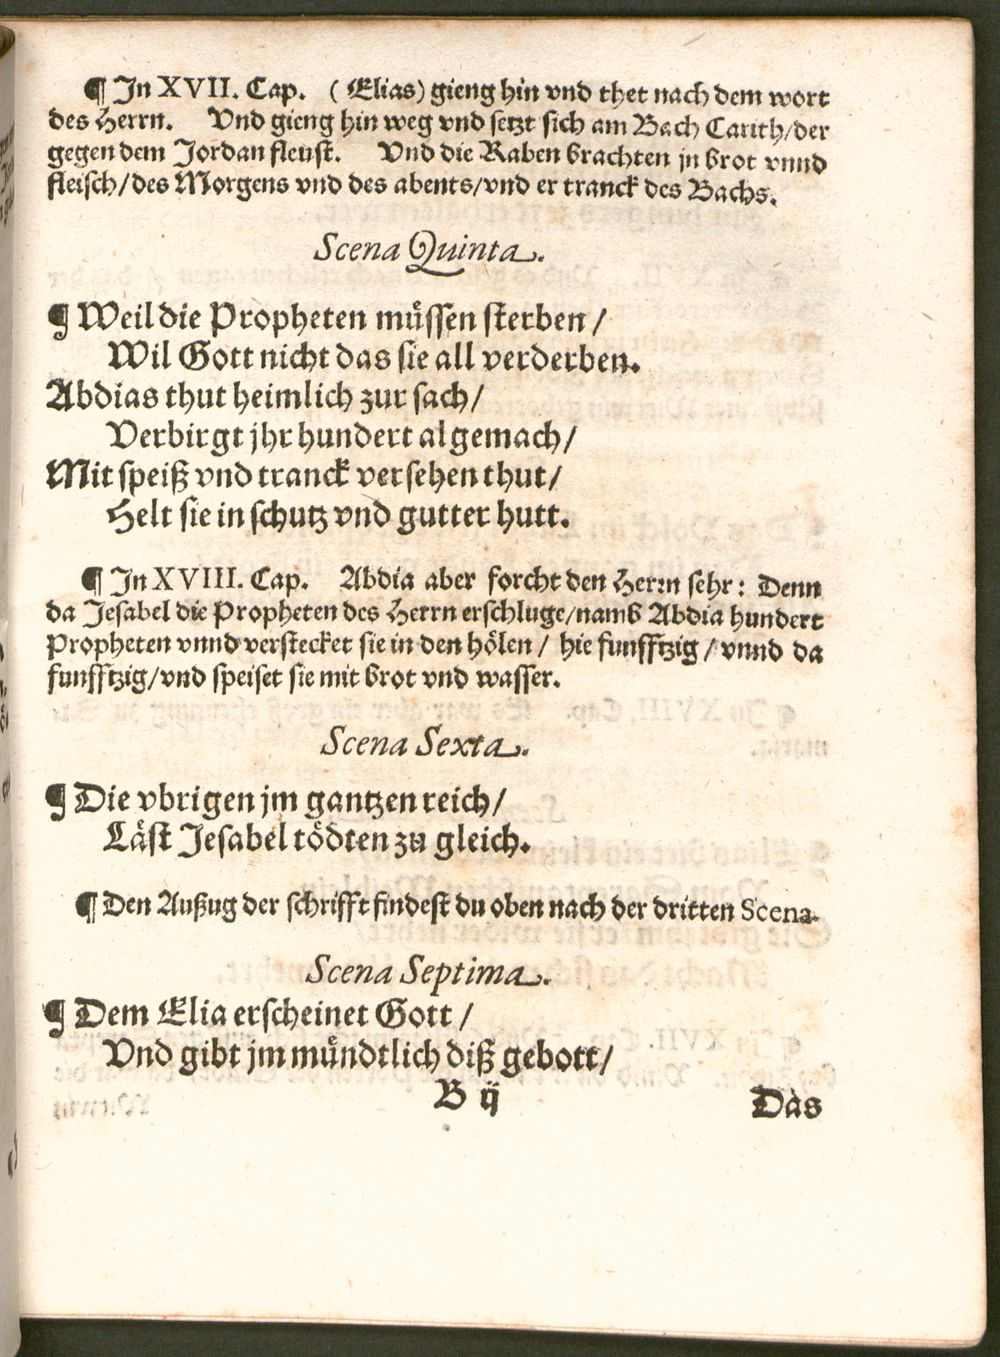 ¶ In XVII. Cap. (Elias) gieng hin vnd thet nach dem wort
des Herrn. Vnd gieng hin weg vnd setzt sich am Bach Carith/der
gegen dem Jordan fleust. Vnd die Raben brachten jn brot vnnd
fleisch/des Morgens vnd des abents/vnd er tranck des Bachs.
Scena Quinta.
¶ Weil die Propheten müssen sterben/
Wil Gott nicht das sie all verderben.
Abdias thut heimlich zur sach/
Verbirgt jhr hundert algemach/
Mit speiß vnd tranck versehen thut/
Helt sie in schutz vnd gutter hutt.
¶ In XVIII. Cap. Abdia aber forcht den Herrn sehr: Denn
da Jesabel die Propheten des Herrn erschluge/namb Abdia hundert
Propheten vnnd verstecket sie in den hölen/ hie funfftzig/vnnd da
funfftzig/vnd speiset sie mit brot vnd wasser.
Scena Sexta.
¶ Die vbrigen jm gantzen reich/
Läst Jesabel tödten zu gleich.
¶ Den Außug der schrifft findest du oben nach der dritten Scena.
Scena Septima.
¶ Dem Elia erscheinet Gott/
Vnd gibt jm mündtlich diß gebott/
B ij
Das